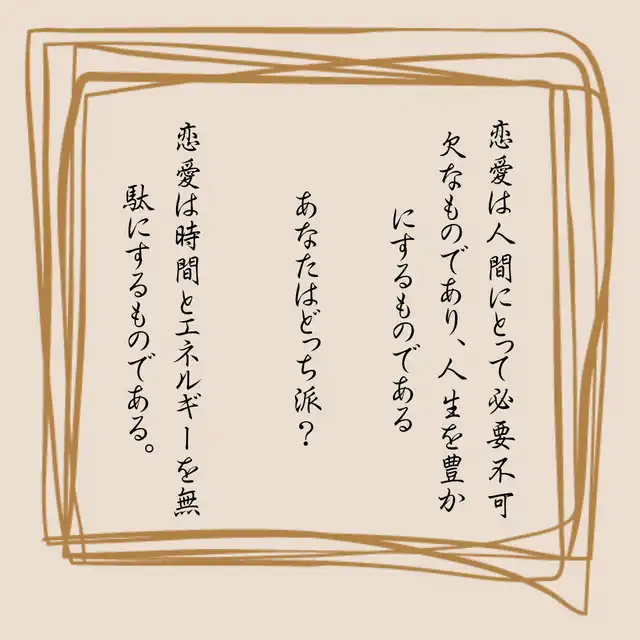 恋愛は人間にとって必要不可
欠なものであり、人生を豊か
にするものである
あなたはどっち派？
恋愛は時間とエネルギーを無
駄にするものである。